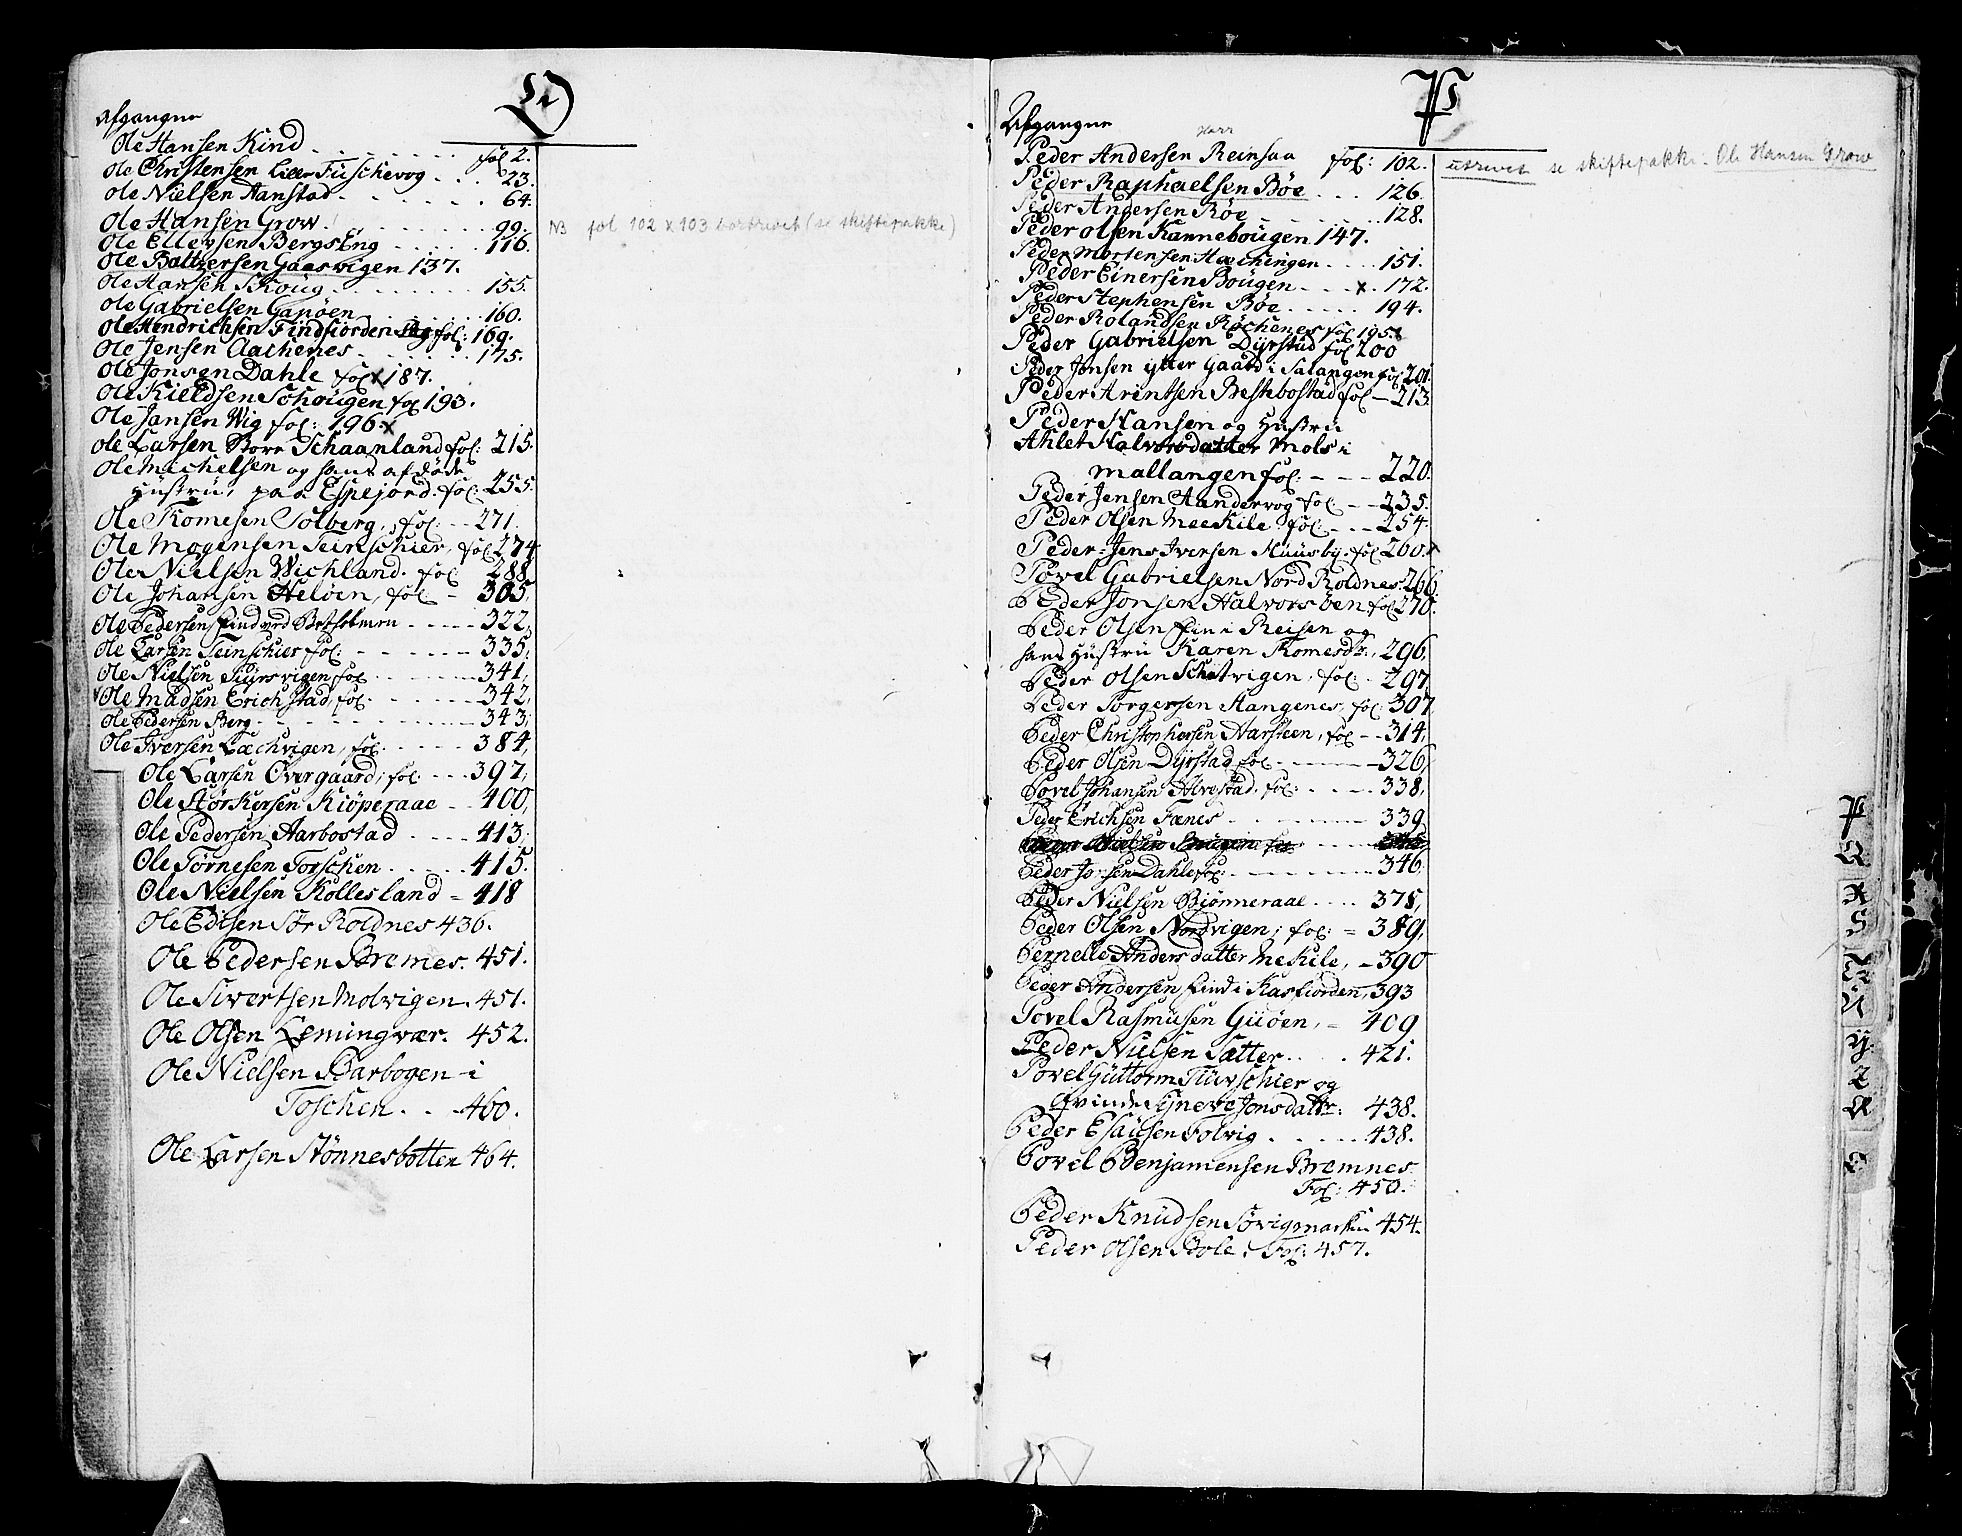 O
Afgangne
Ole Hansen Kind . . . . . . . fol 2.
Ole Christensen Lille Fuschevog . . . 23.
Ole Nielsen Aanstad . . . . . . . 64.
Ole Hansen Grow . . . . . . . 99.
NB fol 102 x 103 bortrevet (se skiftepakke)
Ole Ellevsen BergsEng . . . . . 116.
Ole Baltzersen Gaasvigen 137.
Ole Hansen Skoug . . . . . . . 155.
Ole Gabrielsen Ganøen . . . . . . 160.
Ole Hendrichsen Findfiorden fol: 169.
Ole Jensen Aachenes . . . . . . . 175.
Ole Jonsen Dahle fol x 187.
Ole Kieldsen Sohougen fol 193.
Ole Jansen Wig fol: 196 x
Ole Larsen Store Schaanland fol: 215.
Ole Michelsen og hans afdøde
Hustru, paa Espejord. fol: 255.
Ole Tomesen Solberg, fol: -- 271.
Ole Mogensen Teinschier, fol 274
Ole Nielsen Wichland. fol 288
Ole Johansen Heløen, fol - 305,
Ole Pedersen Find ved Botholmen ----- 322,
Ole Larsen Teinschier fol: ------ 335,
Ole Nielsen Tujrsvigen fol ------ 341,
Ole Madsen Erichstad, fol. ------ 342,
Ole Pedersen Berg ------ 343,
Ole Iversen Læchvigen, fol: ----- 384,
Ole Larsen Overgaard, fol: --- 397,
Ole Størkersen Kiøperaae -- 400,
Ole Pedersen Aarbostad ---- 413,
Ole Tørnesen Torschen ..... 415.
Ole Nielsen Kollesland - 418
Ole Edisen Sør Roldnes 436.
Ole Pedersen Bremes. 451.
Ole Sivertsen Molvigen. 451.
Ole Olsen Lemingvær. 452.
Ole Nielsen Barbogen i
Toschen . . . 460.
Ole Larsen Stønnesbotten 464.
P
Afgangne
Herr
Peder Andersen Reinsaa fol: 102.
utrevet se skiftepakke. Ole Hansen Grow
Peder Raphaelsen Bøe . . . 126.
Peder Andersen Bøe . . . . . . 128.
Peder Olsen Kannebougen 147.
Peder Mortensen Hachingen . . . . 151.
Peder Einersen Bougen . . . x . 172.
Peder Stephensen Bøe . . . . . 194.
Peder Rolandsen Røchenes fol 195
Peder Gabrielsen Dyrstad fol 200
Peder Jonsen ytter Gaard i Salangen fol 201.
Peder Arentsen Bestebostad fol - 213
Peder Hansen og Hustru
Ahlet Halvorsdatter Mols i
Mallangen fol: --- 220.
Peder Jensen Aandervog fol -- 235.
Peder Olsen Meekile fol: --- 254.
Peder Jens Iversen Huusby. fol 260. x
Povel Gabrielsen Nord Roldnes 266
Peder Jonsen Halvorsøen fol 270.
Peder Olsen Fin i Reisen og
hans Hustru Karen Tomesdtr., 296,
Peder Olsen Schitvigen, fol: - 297,
Peder Torgersen Stangenes, fol: 307,
Peder Christophersen Harsteen, fol -- 314,
Peder Olsen Dyrstad fol ------ 326,
Povel Johansen Alvestad. fol: ---- 338,
Peder Erichsen Fænes ------ 339,
Peder Jonsen Dahle fol: ------ 346,
Peder Nielsen Biønneraae .... 378,
Peder Olsen Nordvigen, fol: = 389,
Pernelle Andersdatter Mekile, - 390
Peder Andersen Find i Kasfiorden, 393
Povel Rasmusen Giiøen, = 409
Peder Nielsen Sætter. . . . 421.
Povel Guttorm Tuvschier og
Qvinde Sÿneve Jonsdattr: 438.
Peder Esaiesen Folvig . . . . . 438.
Povel Benjamensen Bremnes.
Fol: 450.
Peder Knudsen Søvigsmarken 454.
Peder Olsen Bole, Fol: 457.
P
Q
R
S
T
U
Y
Z
Æ
Ø